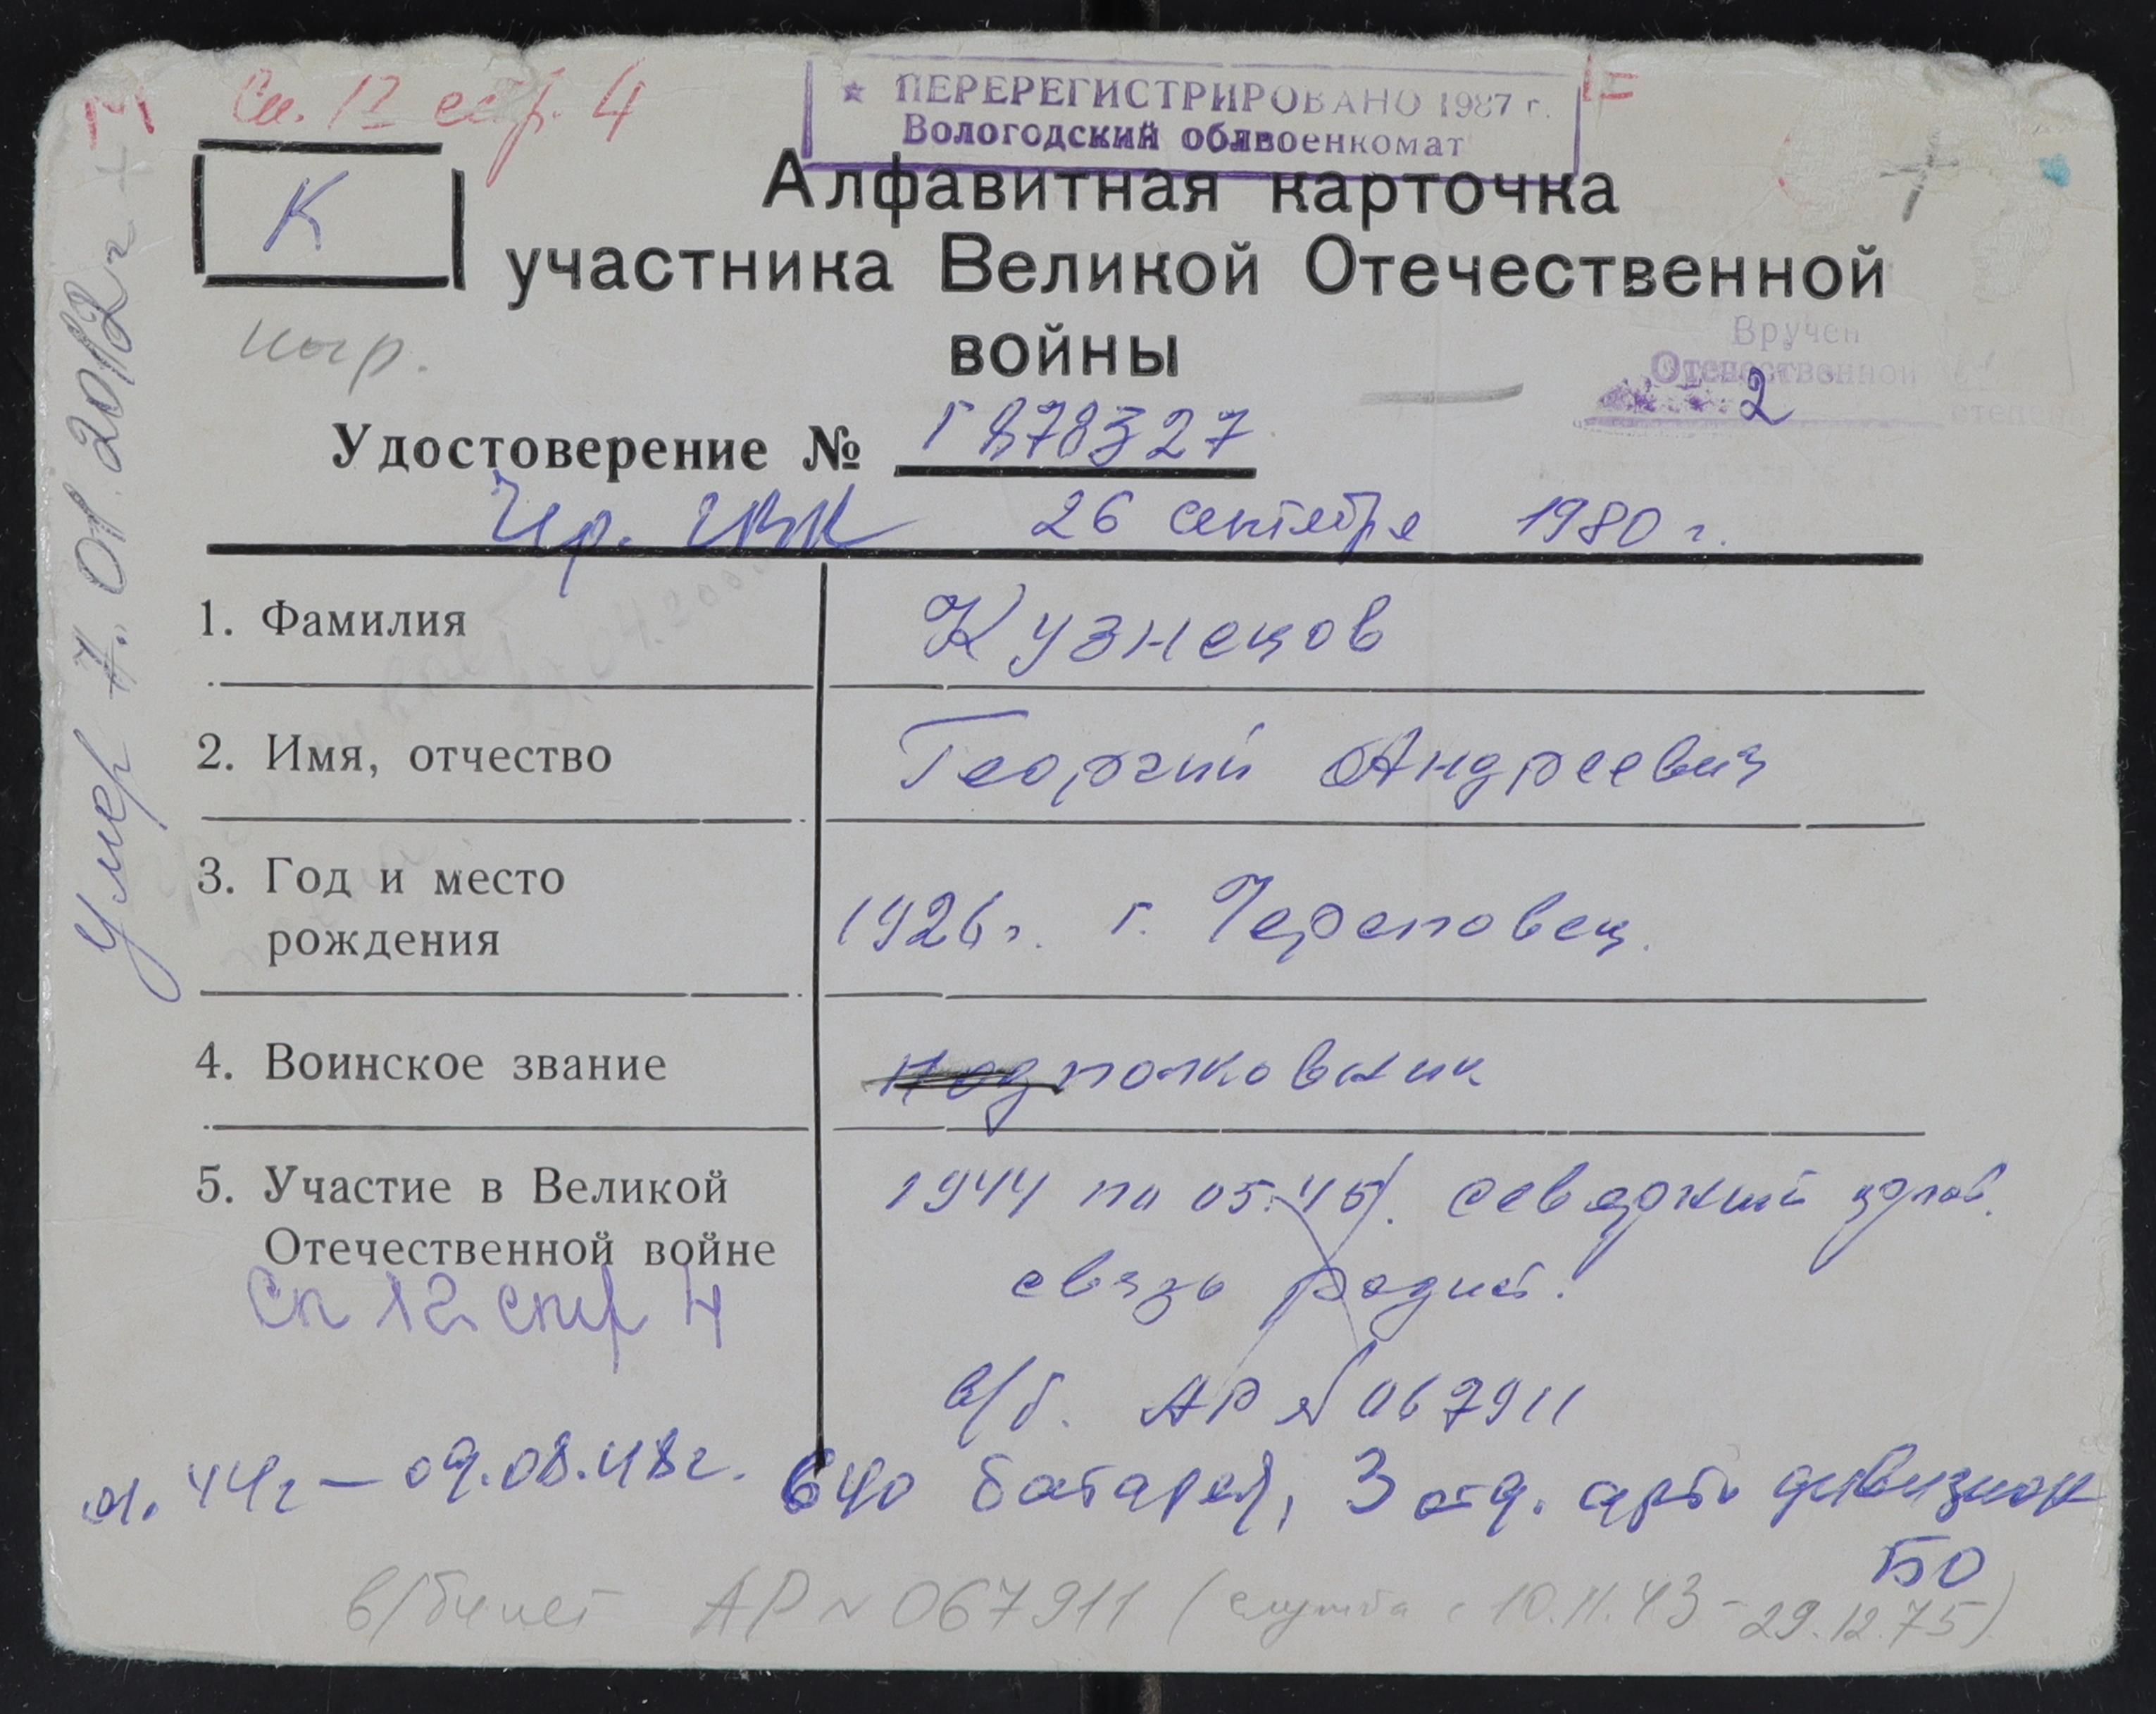 Сп. 12 стр. 4
★ ПЕРЕРЕГИСТРИРОВАНО 1987 г.
Вологодский облвоенкомат
К
Алфавитная карточка
участника Великой Отечественной
войны
Вручен
Отечественной
2
степ
Удостоверение № Г 878327
Чер. ГВК 26 сентября 1980 г.
1. Фамилия Кузнецов
2. Имя, отчество Георгий Андреевич
3. Год и место
рождения
1926 г. г. Череповец.
4. Воинское звание подполковник
5. Участие в Великой
Отечественной войне
1944 по 05.45г.
связь
Сп 12 стр 4
в/б. АР № 067911
44г – 09.08.48г. 640 батарея, 3 отд. арт. дивизион
БО
в/билет АР № 067911 (служба с 10.11.43 – 29.12.75)
Умер 7.01.2012г